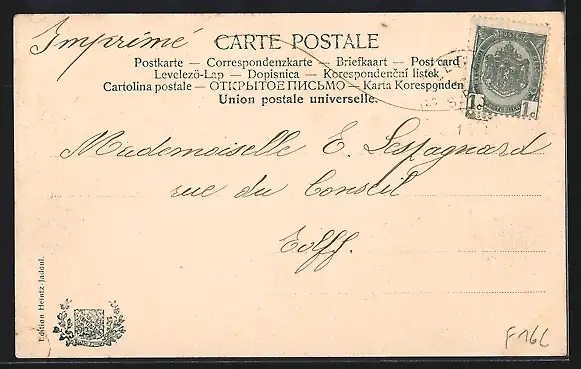 Imprimé
CARTE POSTALE
Postkarte — Correspondenzkarte — Briefkaart — Post card
Levelező-Lap — Dopisnica — Korespondenční listek
Cartolina postale — ОТКРЫТОЕ ПИСЬМО — Karta Koresponden
Union postale universelle.
1c 1c
Mademoiselle E. Lespagnard
rue du Conseil
Edition Heintz-Jadoul.
F16C